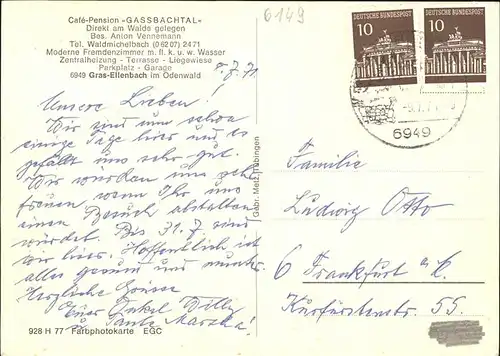 Café-Pension -GASSBACHTAL-
Direkt am Walde gelegen
Bes. Anton Vennemann
Tel. Waldmichelbach (0 62 07) 24 71
Moderne Fremdenzimmer m. fl. k. u. w. Wasser
Zentralheizung - Terrasse - Liegewiese
Parkplatz - Garage
6949 Gras-Ellenbach im Odenwald
6149
8.7.71
Unsere Lieben!
Wir sind nun schon
einige Tage hier und es
gefällt uns sehr gut.
Wir würden uns sehr
freuen, wenn Ihr uns
einen Besuch abstatten
würdet. Bis 31.7. sind
wir hier. Hoffentlich ist
alles gesund und munter.
Herzliche Grüsse
Euer Onkel Willy
u. Tante
928 H 77 Farbphotokarte EGC
Gebr. Metz, Tübingen
DEUTSCHE BUNDESPOST
10
DEUTSCHE BUNDESPOST
10
6949
Familie
Ludwig Otto
6 Frankfurt a. M.
Kurfürstenstr. 55.